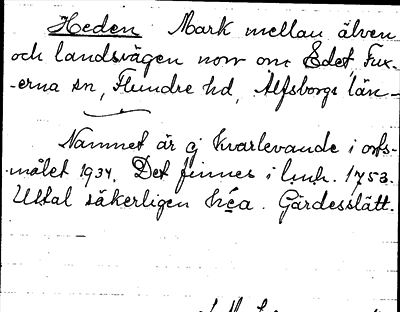 Heden Mark mellan älven
och landsvägen norr om Edet, Fux-
-erna sn, Flundre hd, Älfsborgs län-
Namnet är ej kvarlevande i orts-
målet 1934. Det finnes i lmh. 1753.
Uttal säkerligen héa. Gärdesslätt.